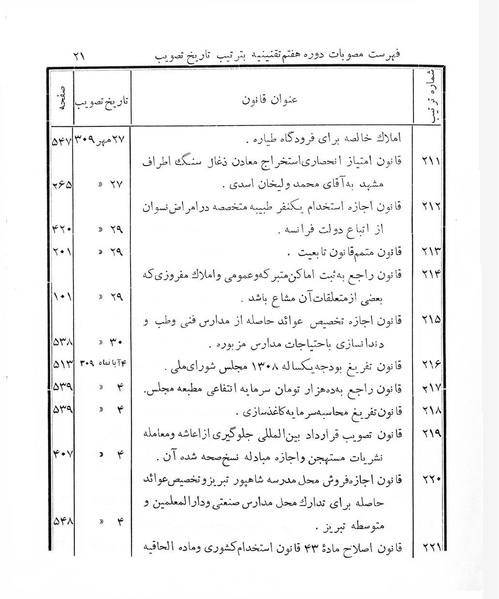 فهرست مصوبات دوره هفتم تقنینیه بترتیب تاریخ تصویب ۲۱
شماره ترتیب عنوان قانون تاریخ تصویب صفحه
املاك خالصه برای فرودگاه طیاره . ۲۷ مهر ۳۰۹ ۵۴۷
۲۱۱ قانون امتیاز انحصاری استخراج معادن ذغال سنگ اطراف
مشهد به آقای محمد ولیخان اسدی . ۲۷ » ۲۶۵
۲۱۲ قانون اجازه استخدام یکنفر طبیبه متخصصه در امراض نسوان
از اتباع دولت فرانسه . ۲۹ » ۴۲۰
۲۱۳ قانون متمم قانون تابعیت . ۲۹ » ۲۰۱
۲۱۴ قانون راجع به ثبت اماکن متبرکه وعمومی واملاك مفروزی که
بعضی از متعلقات آن مشاع باشد . ۲۹ » ۱۰۱
۲۱۵ قانون اجازه تخصیص عوائد حاصله از مدارس فنی وطب و
دندانسازی باحتیاجات مدارس مزبوره . ۳۰ » ۵۳۸
۲۱۶ قانون تفریغ بودجه یکساله ۱۳۰۸ مجلس شورای ملی . ۴ آبانماه ۳۰۹ ۵۱۳
۲۱۷ قانون راجع به ده هزار تومان سرمایه انتفاعی مطبعه مجلس. ۴ » ۵۳۹
۲۱۸ قانون تفریغ محاسبه سرمایه کاغذسازی . ۴ » ۵۳۹
۲۱۹ قانون تصویب قرارداد بین المللی جلوگیری از اعاشه ومعامله
نشریات مستهجن واجازه مبادله نسخ صحه شده آن . ۴ » ۴۰۷
۲۲۰ قانون اجازه فروش محل مدرسه شاهپور تبریز و تخصیص عوائد
حاصله برای تدارك محل مدارس صنعتی ودارالمعلمین و
متوسطه تبریز . ۴ » ۵۴۸
۲۲۱ قانون اصلاح مادۀ ۴۳ قانون استخدام کشوری وماده الحاقیه